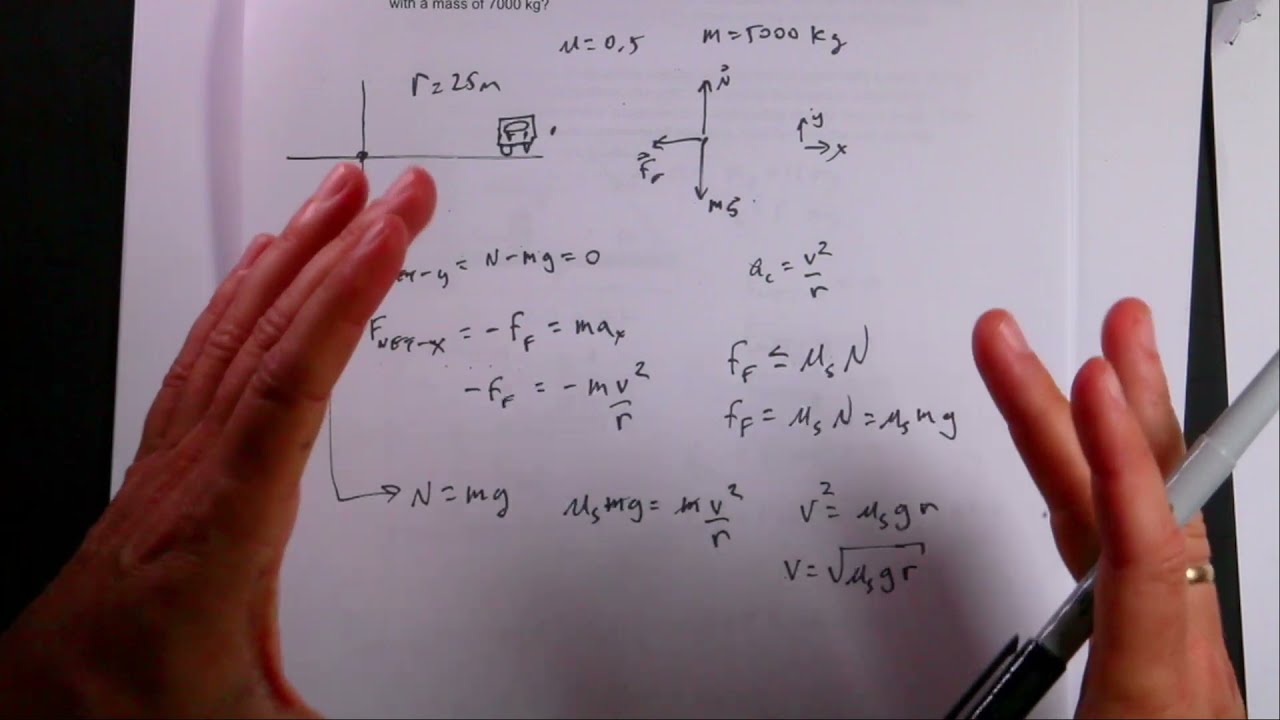 with a mass of 7000 kg?
μ=0,5
m=5000 kg
r=25m
N
y
x
f_F
mg
-y = N-mg=0
a_c = v²/r
F_NET-x = -f_F = ma_x
f_F ≤ μ_s N
-f_F = -m v²/r
f_F = μ_s N = μ_s mg
N=mg
μ_s mg = m v²/r
v² = μ_s g r
v = √μ_s g r